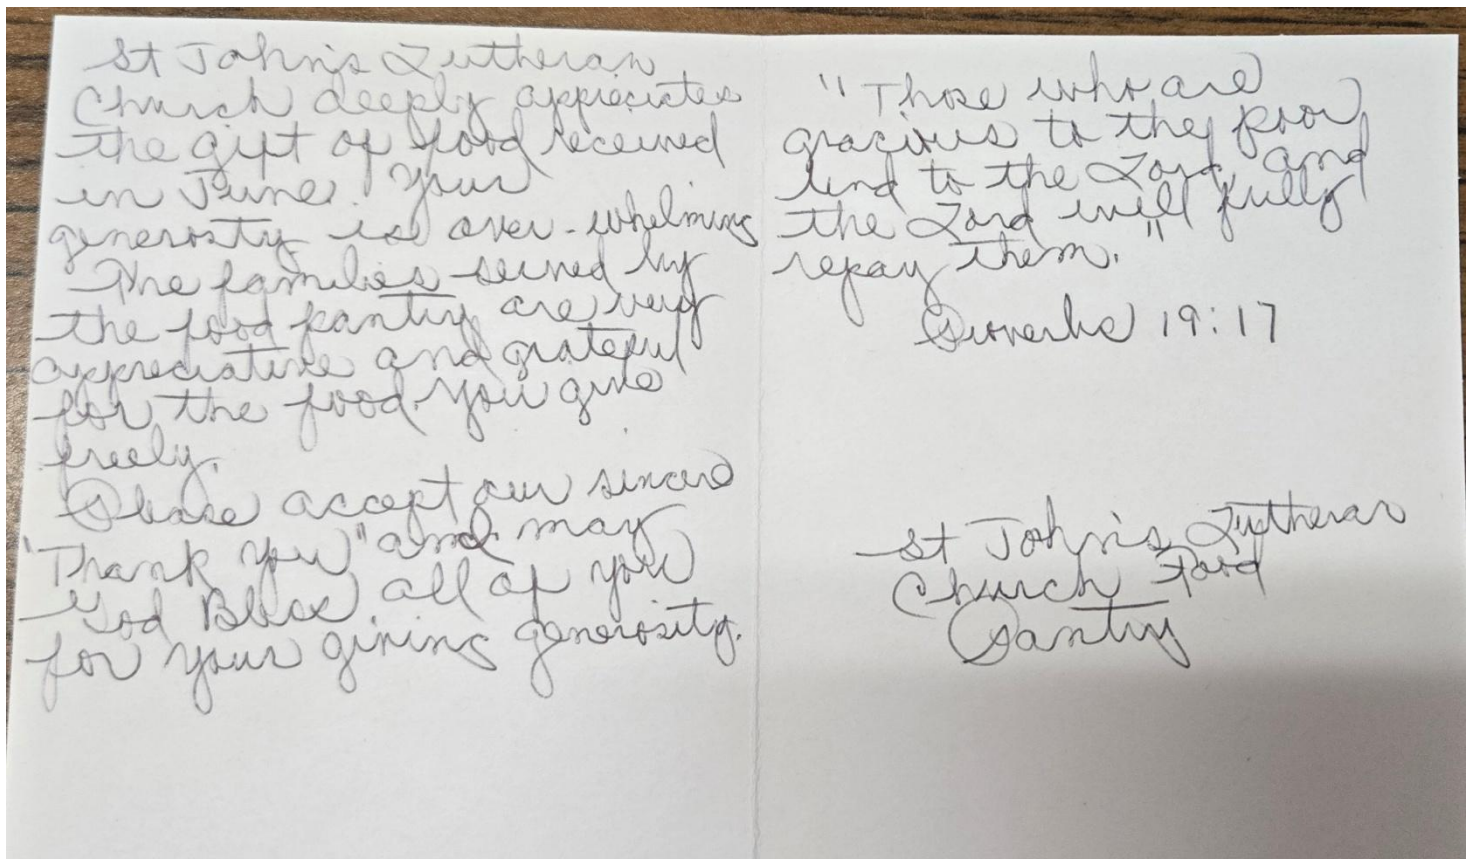 St John's Lutheran
Church deeply appreciates
the gift of food received
in June. Your
generosity is over-whelming
The families served by
the food pantry are very
appreciative and grateful
for the food you give
freely.
Please accept our sincere
"Thank you" and may
God Bless all of you
for your giving generosity.
"Those who are
gracious to they poor
lend to the Lord, and
the Lord will fully
repay them."
Proverbs 19:17
St John's Lutheran
Church Food
Pantry